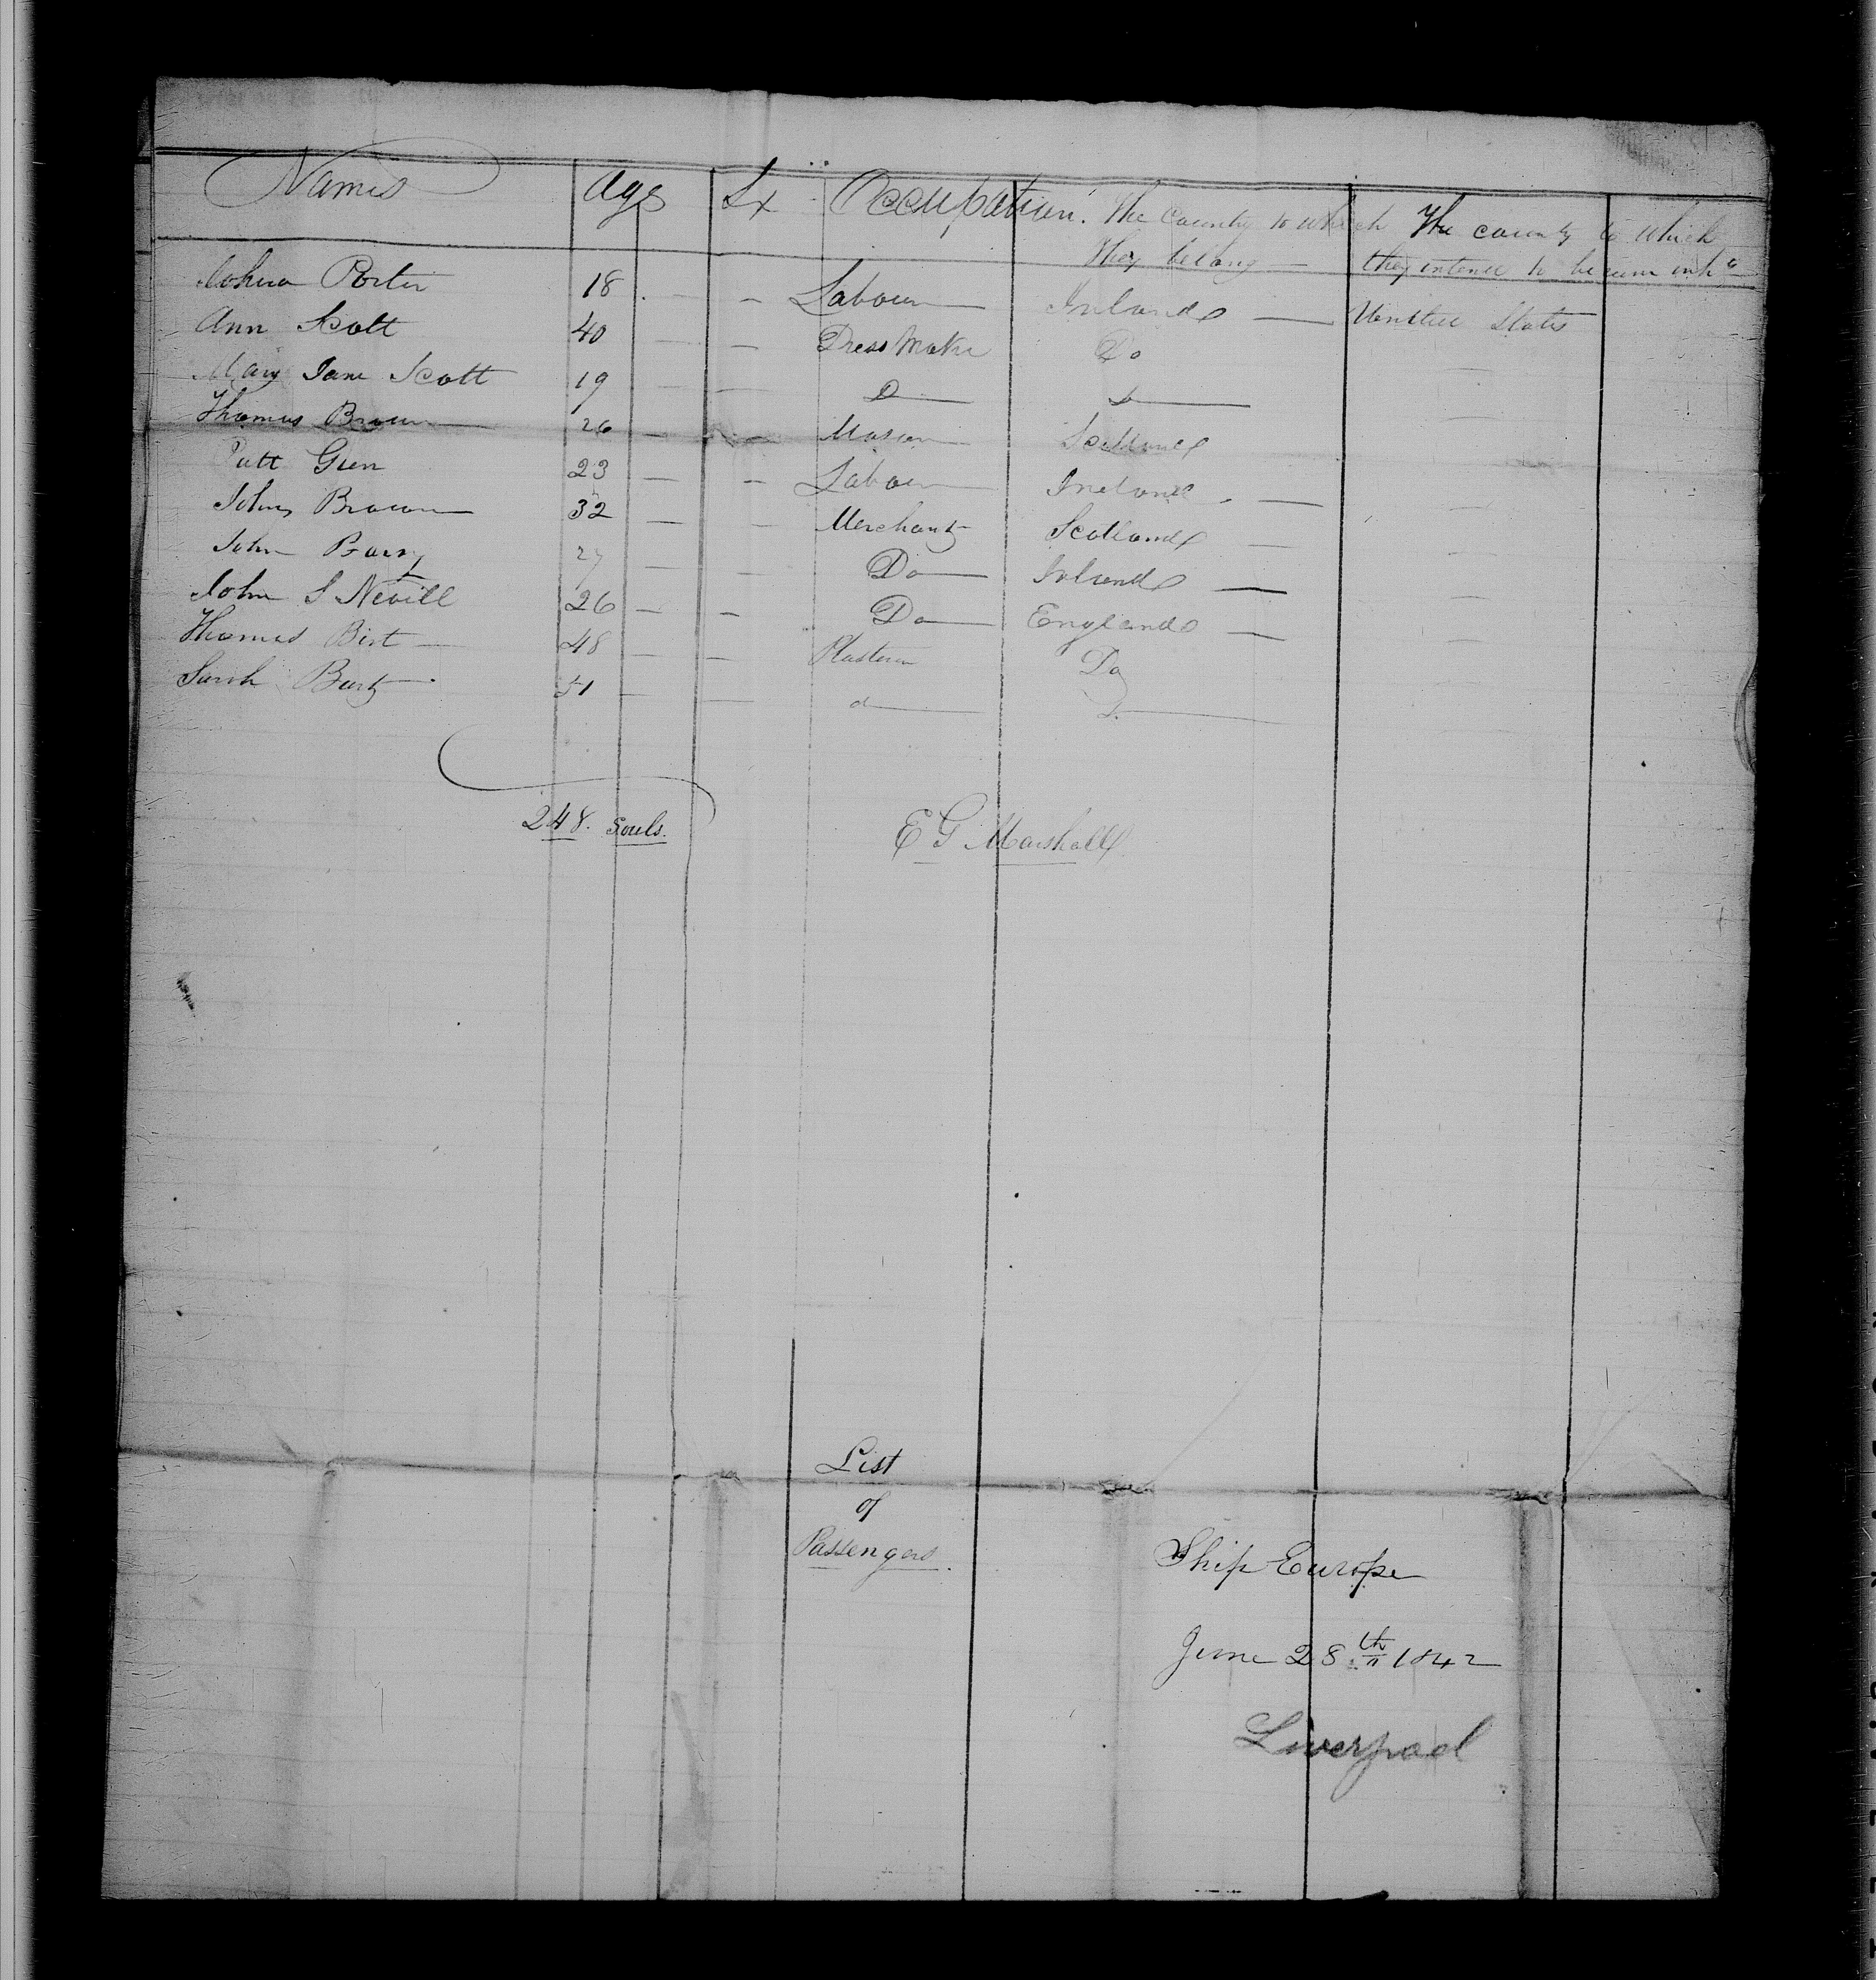 Names Age Sx Occupation. The County to which The county to which
they belong — they intend to become inh
Joshua Porter 18 . — — Labour Ireland — United States
Ann Scott 40 — — Dress Maker Do —
Mary Jane Scott 19 — — D — D — —
Thomas Brown 26 — — Mason Scotland —
Patt Green 23 — — Labour Ireland — —
John Brown 32 — — Merchant Scotland — —
John Barry 27 — — Do Ireland — —
John S Nevill 26 — — Do England — —
Thomas Birt 48 — — Plasterer Do —
Sarah 51 — — d D
248. Souls. E G Marshall
List
of
Passengers.
Ship Europe
June 28th 1842
Liverpool